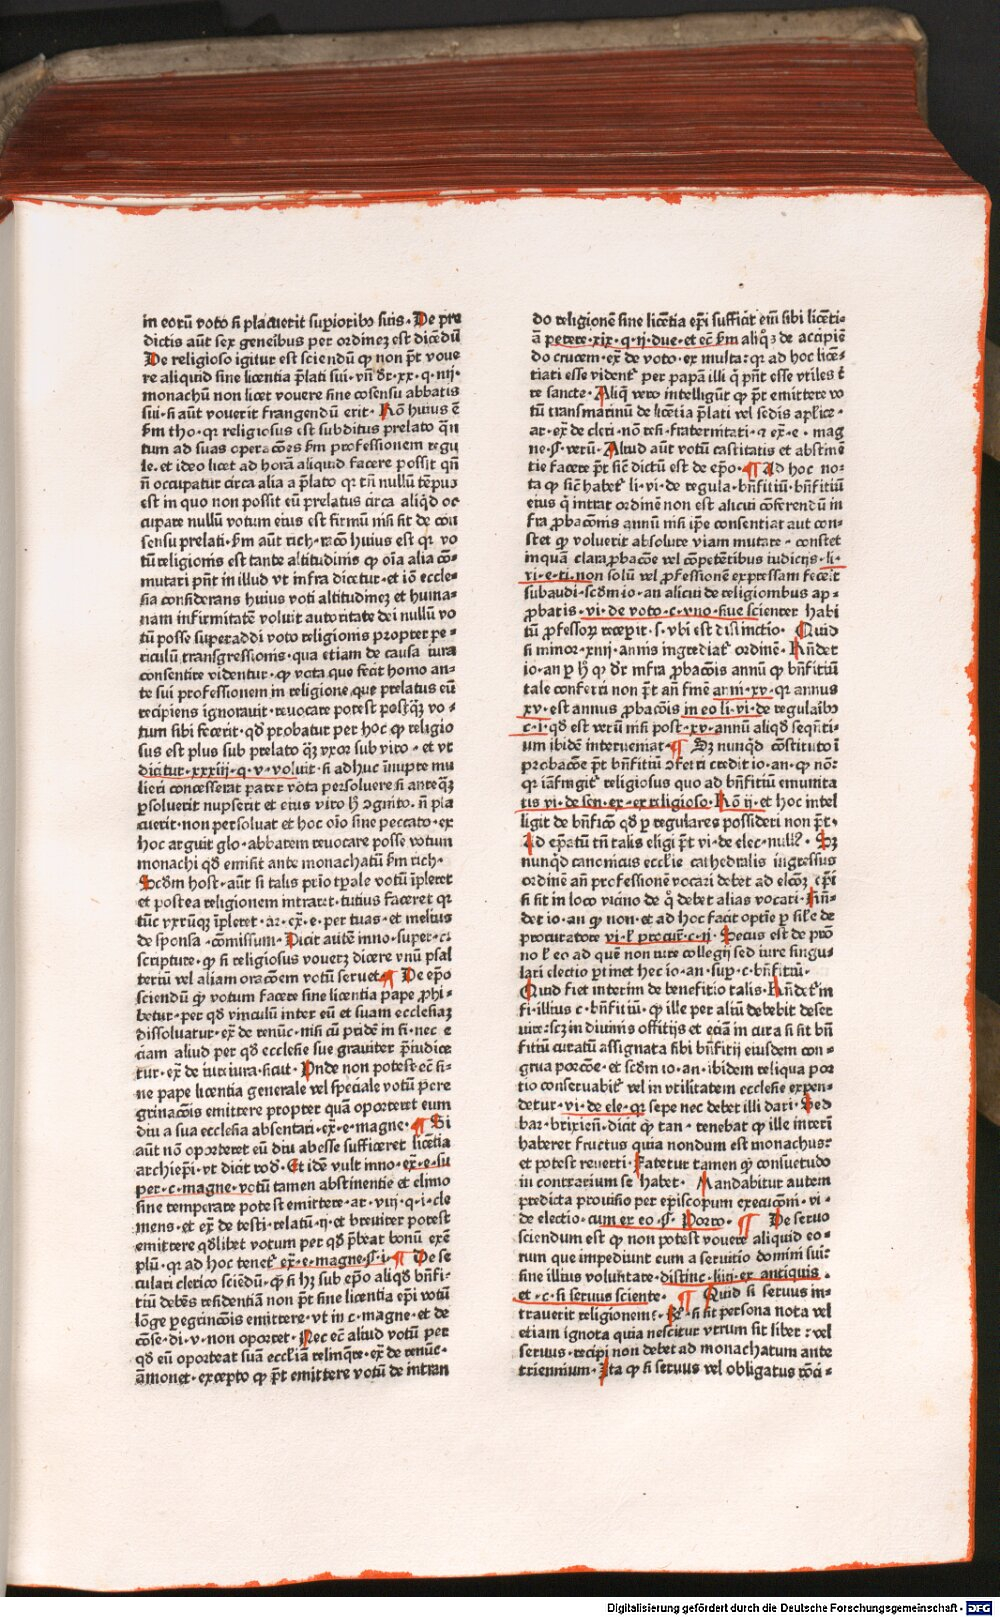 in eorū voto si placuerit superioribꝰ suis · De pre
dictis aūt sex generibus per ordinez est dicēdū
De religioso igitur est sciendū ꝙ non pōt voue
re aliquid sine licentia p̄lati sui · vn̄ dr̄ · xx · q · iiij ·
monachū non licet vovere sine cōsensu abbatis
sui · si aūt vouerit frangendū erit · Rō huius ē
sm̄ tho · qr religiosus est subditus prelato q̄n
tum ad suas operacōes sm̄ professionem regu
le · et ideo licet ad horā aliquid facere possit qn̄
n̄ occupatur circa alia a p̄lato qr tn̄ nullū tēpus
est in quo non possit eū prelatus circa aliqd oc
cupare nullū votum eius est firmū nisi sit de con
sensu prelati · sm̄ aūt rich · racō huius est qr vo
tū religionis est tante altitudinis ꝙ oīa alia cō=
mutari pn̄t in illud vt infra dicetur · et iō eccle=
sia considerans huius voti altitudinez et huma=
nam infirmitatē voluit autoritate dei nullū vo
tū posse superaddi voto religionis propter pe=
riculū transgressionis · qua etiam de causa iura
consentire videntur · ꝙ vota que fecit homo an=
te sui professionem in religione que prelatus eū
recipiens ignoravit · revocare potest postqz vo=
tum sibi fecerit · qd probatur per hoc ꝙ religio
sus est plus sub prelato qz vxor sub viro · et vt
dicitur · xxxiij · q · v · voluit · si adhuc īnupte mu
lieri concesserat pater vota persoluere si anteqz
ꝑsoluerit nupserit et eius viro h̄ ꝯgnito · n̄ pla
cuerit · non persoluat et hoc oīo sine peccato · ex
hoc arguit glo · abbatem revocare posse votum
monachi qd emisit ante monachatū sm̄ rich ·
Scdm host · aūt si talis prīo tp̄ale votū īpleret
et postea religionem intraret · tutius faceret qr
tūc vtrūqz īpleret · ar · ex̄ · e · per tuas · et melius
de sponsa · cōmissum · Dicit autem inno · super · c ·
scripture · ꝙ si religiosus vouerz dicere vnū psal
teriū vel aliam oracōem votū seruet · ¶ De ep̄o
sciendū ꝙ votum facere sine licentia pape ꝓhi=
betur · per qd vinculū inter eū et suam ecclesiaz
dissoluatur · ex̄ de renūc · nisi cū pridē in fi · nec e
ciam aliud per qd ecclesie sue graviter p̄iudice
tur · ex̄ de iureiura · sicut · Vnde non potest ec̄ si=
ne pape licentia generale vel speciale votū pere
grinacōis emittere propter quā oporteret eum
diu a sua ecclesia absentari · ex̄ · e · magne · ¶ Si
aūt nō oporteret eū diu abesse sufficeret licētia
archiep̄i · vt dicit rod̄ · Et idē vult inno · ex̄ · e · su
per · c · magne · votū tamen abstinentie et elimo
sine temperate potest emittere · ar · viij · q · i · cle
mens · et ex̄ de testi · relatū · ij · et breviter potest
emittere qdlibet votum per qd p̄beat bonū exē
plū · qr ad hoc tenet̄ ex̄ · e · magne · §· i · ¶ De se
culari clerico sciēdū · ꝙ si hz sub ep̄o aliqd bn̄fi=
tiū debēs residentiā non pōt sine licentia ep̄i votū
lōge ꝑegrinacōis emittere · vt in c · magne · et de
cōse · di · v · non oportet · Nec ec̄ aliud votū per
qd eū oporteat suā eccl̄iam relinqre · ex̄ de renūc ·
āmonet · excepto ꝙ pōt emittere votū de intran
do religionē sine licētia ep̄i sufficit em̄ sibi licēti=
ā petere · xix · q · ij · due · et ec̄ sm̄ aliqs de accipiē
do crucem · ex̄ de voto · ex multa · qr ad hoc licē=
tiati esse vident̄ per papā illi q̄ pn̄t esse vtiles t̄
re sancte · Aliq̄ vero intelligūt ꝙ pōt emittere vo
tū transmarinū de licētia p̄lati vel sedis apl̄ice ·
ar · ex̄ de cleri · nō resi · fraternitati · ⁊ ex̄ · e · mag
ne · §· verū · Aliud aūt votū castitatis et abstinē
tie facere pōt sic̄ dictū est de ep̄o · ¶ Ad hoc no=
ta ꝙ sic̄ habet̄ li · vi · de regula · bn̄fitiū · bn̄fitiū
eius q̄ intrat ordinē non est alicui cōferendū in
fra ꝓbacōnis annū nisi ip̄e consentiat aut con=
stet ꝙ voluerit absolute viam mutare · constet
inquā clara ꝓbacōe vel cōpetētibus iudicijs · li=
vi · e · ti · non solū vel ꝓfessionē expressam fecerit
subaudi · scdm io · an alicui de religionibus ap=
ꝓbatis · vi · de voto · c · vno · siue scienter habi
tū ꝓfessorz recepit · s · vbi est distinctio · Quid
si minor · xiiij · annis ingrediat̄ ordinē · Rn̄det
io · an ꝑ h̄ ꝙ dr̄ infra ꝓbacōis annū ꝙ bn̄fitiū
tale conferri non pōt an̄ finē anni · xv · qr annus
xv · est annus ꝓbacōis in eo li · vi · de regularibꝰ
c · i · qd est verū nisi post · xv · annū aliqd seqn̄ti=
um ibidē interveniat · ¶ Sz nunqd cōstituto ī
ꝓbacōe pōt bn̄fitiū ꝯferri credit io · an · ꝙ nō:
qr iā fingit̄ religiosus quo ad bn̄fitiū emunita
tis vi · de sen · ex · ex religioso · Rō ij · et hoc intel
ligit de bn̄ficō qd ꝑ regulares possideri non pōt ·
Ad ep̄atū tn̄ talis eligi pōt vi · de elec · nullꝰ · Sz
nunqd canonicus eccl̄ie cathedralis ingressus
ordinē an̄ professionē vocari debet ad elcōz ep̄i
si sit in loco vicino de q̄ debet alias vocari · Rn̄=
det io · an ꝙ non · et ad hoc facit optīe ꝑ sil̄e de
procuratore vi · l̄ procur̄ · c · ij · Secus est de p̄o
no l̄ eo ad quē non iure collegij sed iure singu=
lari electio ꝑtinet hec io · an · sup · c · bn̄fitiū ·
Quid fiet interim de benefitio talis · Rn̄det̄ in
fi · illius c · bn̄fitiū · ꝙ ille per aliū debebit deser
uire · scz in diuinis offitijs et eciā in cura si sit bn̄
fitiū curatū assignata sibi bn̄fitij eiusdem con=
grua porcōe · et scdm io · an · ibidem reliqua por
tio conseruabit̄ vel in vtilitatem ecclesie expen=
detur · vi · de ele · qr sepe nec debet illi dari · Sed
bar · brixien̄ · dicit ꝙ tan · tenebat ꝙ ille interī
haberet fructus quia nondum est monachus:
et potest reverti · Fatetur tamen ꝙ consuetudo
in contrarium se habet · Mandabitur autem
predicta provisio per episcopum execucōni · vi ·
de electio · cum ex eo · §· Porro · ¶ De seruo
sciendum est ꝙ non potest vovere aliquid eo=
rum que impediunt eum a seruitio domini sui:
sine illius voluntate · distinc · liiij · ex antiquis ·
et · c · si seruus sciente · ¶ Quid si seruus in=
traverit religionem: R̄ · si sit persona nota vel
etiam ignota quia nescitur vtrum sit liber: vel
seruus · recipi non debet ad monachatum ante
triennium · Ita ꝙ si seruus vel obligatus rōci=
Digitalisierung gefördert durch die Deutsche Forschungsgemeinschaft - DFG